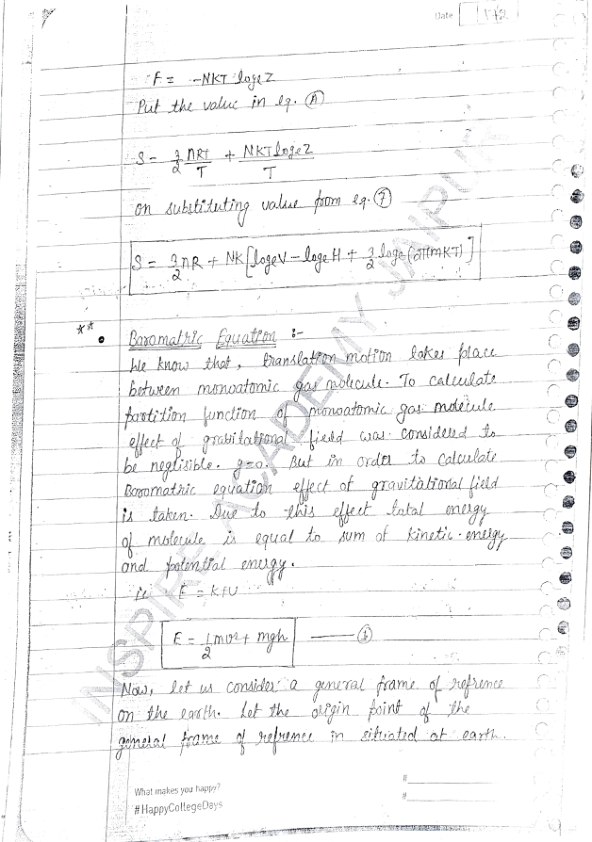 Date 142
F = -NKT logeZ
Put the value in eq. (A)
S = 3/2 nRT/T + NKT logeZ/T
on substituting value from eq. (7)
S = 3/2 nR + NK [logeV - logeH + 3/2 loge(2πmKT)]
** • Baromatric Equation :-
We know that, translation motion takes place
between monoatomic gas molecule. To calculate
partition function of monoatomic gas molecule
effect of gravitational field was considered to
be neglisible. g=0. But in order to calculate
Boromatric equation effect of gravitational field
is taken. Due to this effect total energy
of molecule is equal to sum of kinetic energy
and potential energy.
ie E = K+U
E = 1/2 mv² + mgh —— (1)
Now, let us consider a general frame of refrence
on the earth. Let the origin point of the
general frame of refrence in situated at earth.
What makes you happy?
#HappyCollegeDays
#
#
INSPIRE ACADEMY JAIPUR